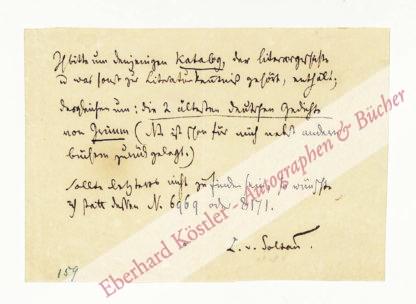 Ich bitte um denjenigen Katalog, der Literargeschichte
u was sonst zur Literaturkenntniß gehört, enthält;
desgleichen um: die 2 ältesten deutschen Gedichte
von Grimm (N ist schon für mich nebst andern
büchern zurückgelegt.)
Sollte letzteres nicht zu finden sein, so wünschte
ich statt dessen N. 6969 oder 8171.
L. v. Soltau.
159
Eberhard Köstler - Autographen & Bücher